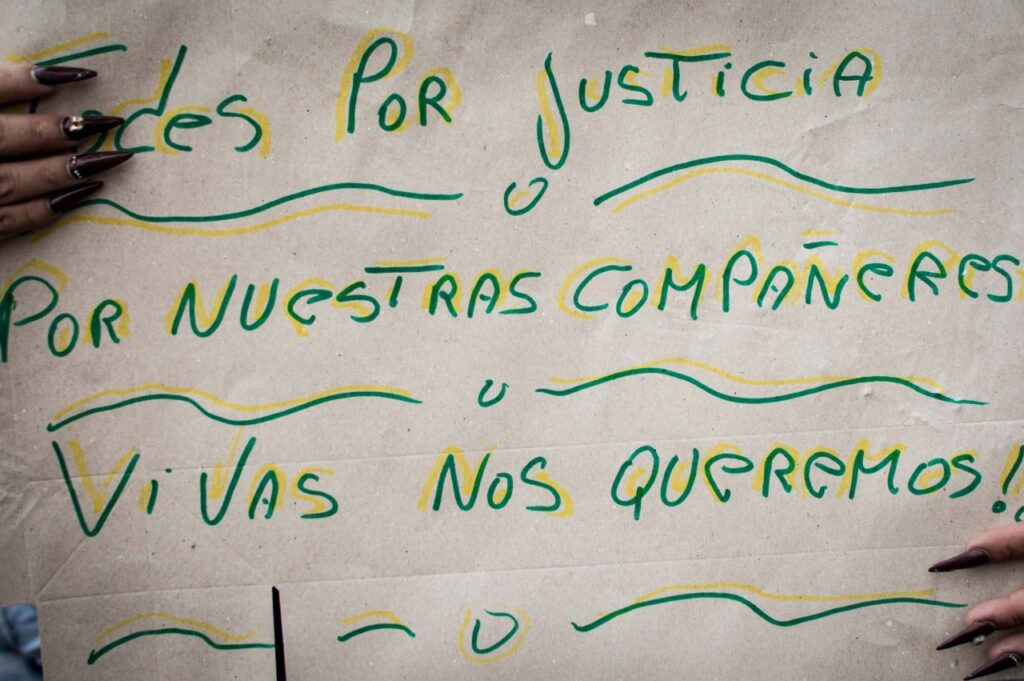 Todes POR JUSTICIA
POR NUESTRAS COMPAÑERES
ViVAS NOS QUEREMOS!!